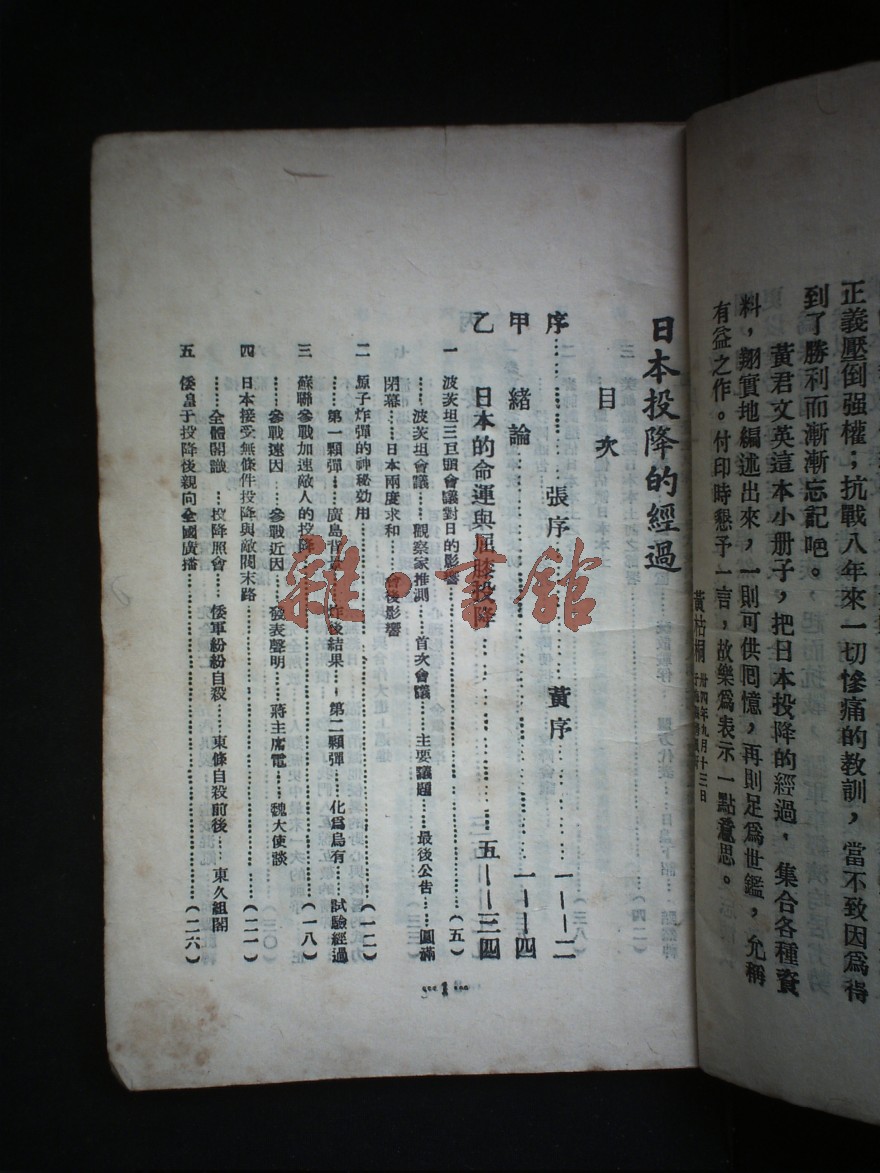 正義壓倒强權；抗戰八年來一切慘痛的教訓，當不致因爲得
到了勝利而漸漸忘記吧。
黃君文英這本小册子，把日本投降的經過，集合各種資
料，翔實地編述出來，一則可供囘憶，再則足爲世鑑，允稱
有益之作。付印時懇予一言，故樂爲表示一點意思。
黃枯桐 卅四年九月十三日
日本投降的經過
目次
序……………張序……………黃序……………一——二
甲 緒論……………一——四
乙 日本的命運與屈膝投降……………五——三四
一 波茨坦三巨頭會議對日的影響……………（五）
……波茨坦會議……觀察家推測……首次會議……主要議題……最後公告……圓滿
閉幕……日本兩度求和……會後影響
二 原子炸彈的神秘効用……………（一二）
……第一顆彈……廣島背景……炸後結果……第二顆彈……化爲烏有……試驗經過
三 蘇聯參戰加速敵人的投降……………（一八）
……參戰遠因……參戰近因……發表聲明……蔣主席電……魏大使談
四 日本接受無條件投降與敵閥末路……………（二一）
……全體閣議……投降照會……倭軍紛紛自殺……東條自殺前後……東久組閣
五 倭皇于投降後親向全國廣播……………（二六）
1
雜·書館